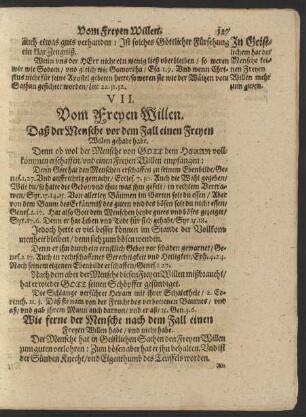 Vom Freyen Willen. 127
Auch etwas guts vorhanden: Ist solches Göttlicher Fürsehung
ein klar Zeugniß.
Wenn uns der HErr nicht ein wenig ließ uberbleiben / so weren
wir wie Sodom / und gleich wie Gomorrha / Esa.1.9. Und wenn Chri-
stus nicht für seine Apostel gebeten hette / so weren sie wie der Wäitzen vom
Sathan gesichtet worden / Luc. 22.31.32.
In Geist-
lichem hat der
Mensche kei-
nen Freyen
Willen mehr
zum guten.
VII.
Vom Freyen Willen.
Daß der Mensche vor dem Fall einen Freyen
Willen gehabt habe.
Denn ob wol der Mensche von GOTT dem HErrn voll-
kommen erschaffen / und einen Freyen Willen empfangen:
Denn Gott hat den Menschen erschaffen zu seinem Ebenbilde / Ge-
nes.1.27. Und auffrichtig gemacht / Eccles. 7.30. Auch die Wahl gegeben /
Wilt du / so halte die Gebot und thue was ihm gefelt / in rechtem Vertra-
wen / Syr.15.15. Von allerley Bäumen im Garten solt du essen / Aber
von dem Baum des Erkäntniß des guten und des bösen solt du nicht essen
Genes.2.17. Hat also Gott dem Menschen beyde gutes und böses gezeiget /
Syr.17.6. Denn er hat Leben und Tode für sich gehabt / Syr.15.18.
Jedoch hette er viel besser können im Stande der Vollkom-
menheit bleiben / denn sich zum bösen wenden.
Denn er ihn durch ein ernstlich Gebot vor schaden gewarnet / Ge-
nes.2.17. Auch in rechtschaffener Gerechtigkeit und Heiligkeit / Eph.4.24.
Nach seinem eigenem Ebenbilde erschaffen / Genes.1.27.
Nach dem aber der Mensche diesen Freyen Willen mißbraucht /
hat er wieder GOTT seinen Schöpffer gesündiget.
Die Schlange verführte Hevam mit ihrer Schalckheit / 2. Co-
rinth. 11.3. Daß sie nam von der Frucht des verbotenen Baumes / und
aß / und gab ihrem Mann auch darvon / und er aß / 1c. Gen.3.6.
Wie ferne der Mensche nach dem Fall einen
Freyen Willen habe / und nicht habe.
Der Mensche hat in Geistlichen Sachen den Freyen Willen
zum guten verlohren: Zum bösen aber hat er ihn behalten. Und ist
der Sünden Knecht / und Eigenthumb des Teuffels worden.